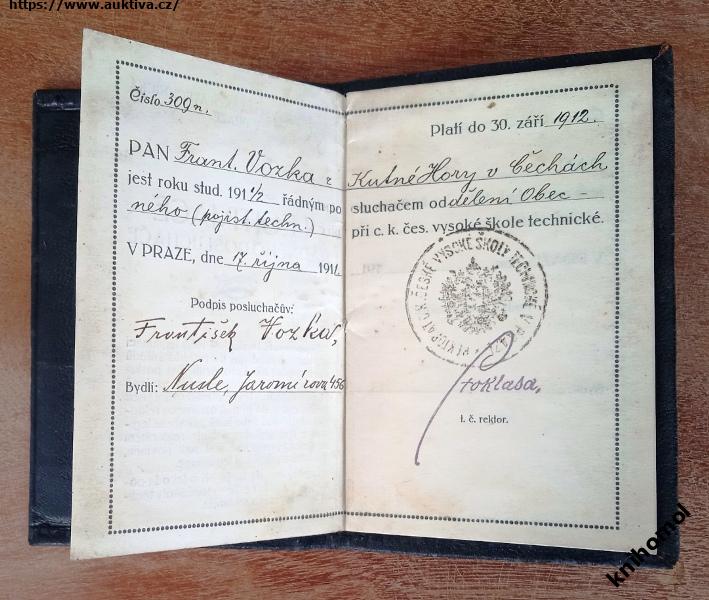 https://www.auktiva.cz/
Číslo 309 n.
PAN Frant. Vozka z
jest roku stud. 191 1/2 řádným po
ného (pojist. techn.)
V PRAZE, dne 17. října 1911.
Podpis posluchačův:
František Vozka,
Bydlí: Nusle, Jaromírova 486
Platí do 30. září 1912.
Kutné Hory v Čechách
sluchačem oddělení Obec-
při c. k. čes. vysoké škole technické.
REKTORÁT C. K. ČESKÉ VYSOKÉ ŠKOLY TECHNICKÉ V PRAZE
Stoklasa,
t. č. rektor.
knihomol